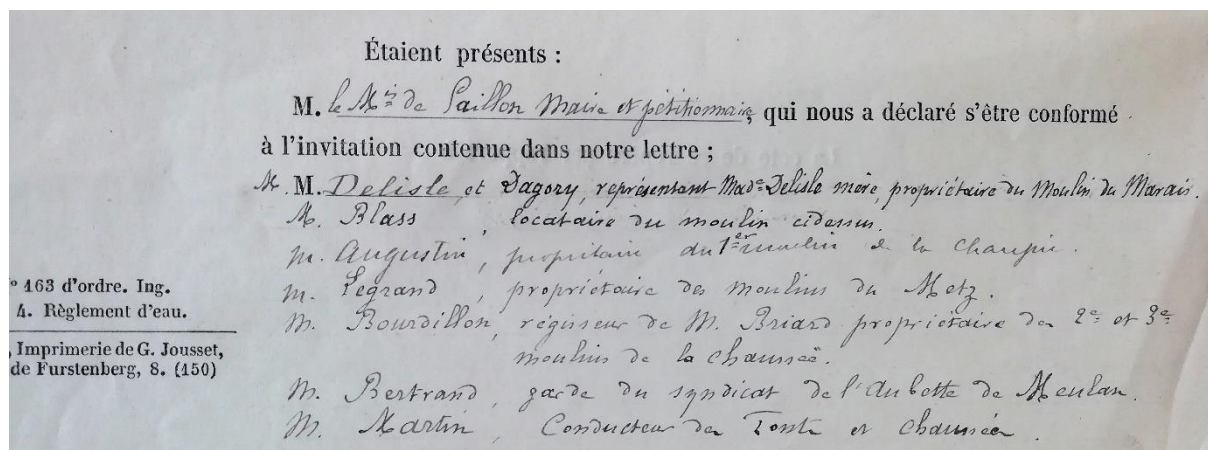 Étaient présents :
M. le M^is de Gaillon Maire et pétitionnaire, qui nous a déclaré s'être conformé
à l'invitation contenue dans notre lettre ;
M. M. Delisle, et Dagory, représentant Mad^e Delisle mère, propriétaire du Moulin du Marais.
M. Blass, locataire du moulin cidessus.
m. Augustin, propriétaire du 1^er moulin de la Chaussée.
m. Legrand, propriétaire des moulins du Metz.
M. Bourdillon, régisseur de M. Briard propriétaire des 2^e et 3^e
moulins de la chaussée.
M. Bertrand, garde du syndicat de l'Aubette de Meulan.
M. Martin, Conducteur des Ponts et chaussées.
° 163 d'ordre. Ing.
4. Règlement d'eau.
, Imprimerie de G. Jousset,
de Furstenberg, 8. (150)